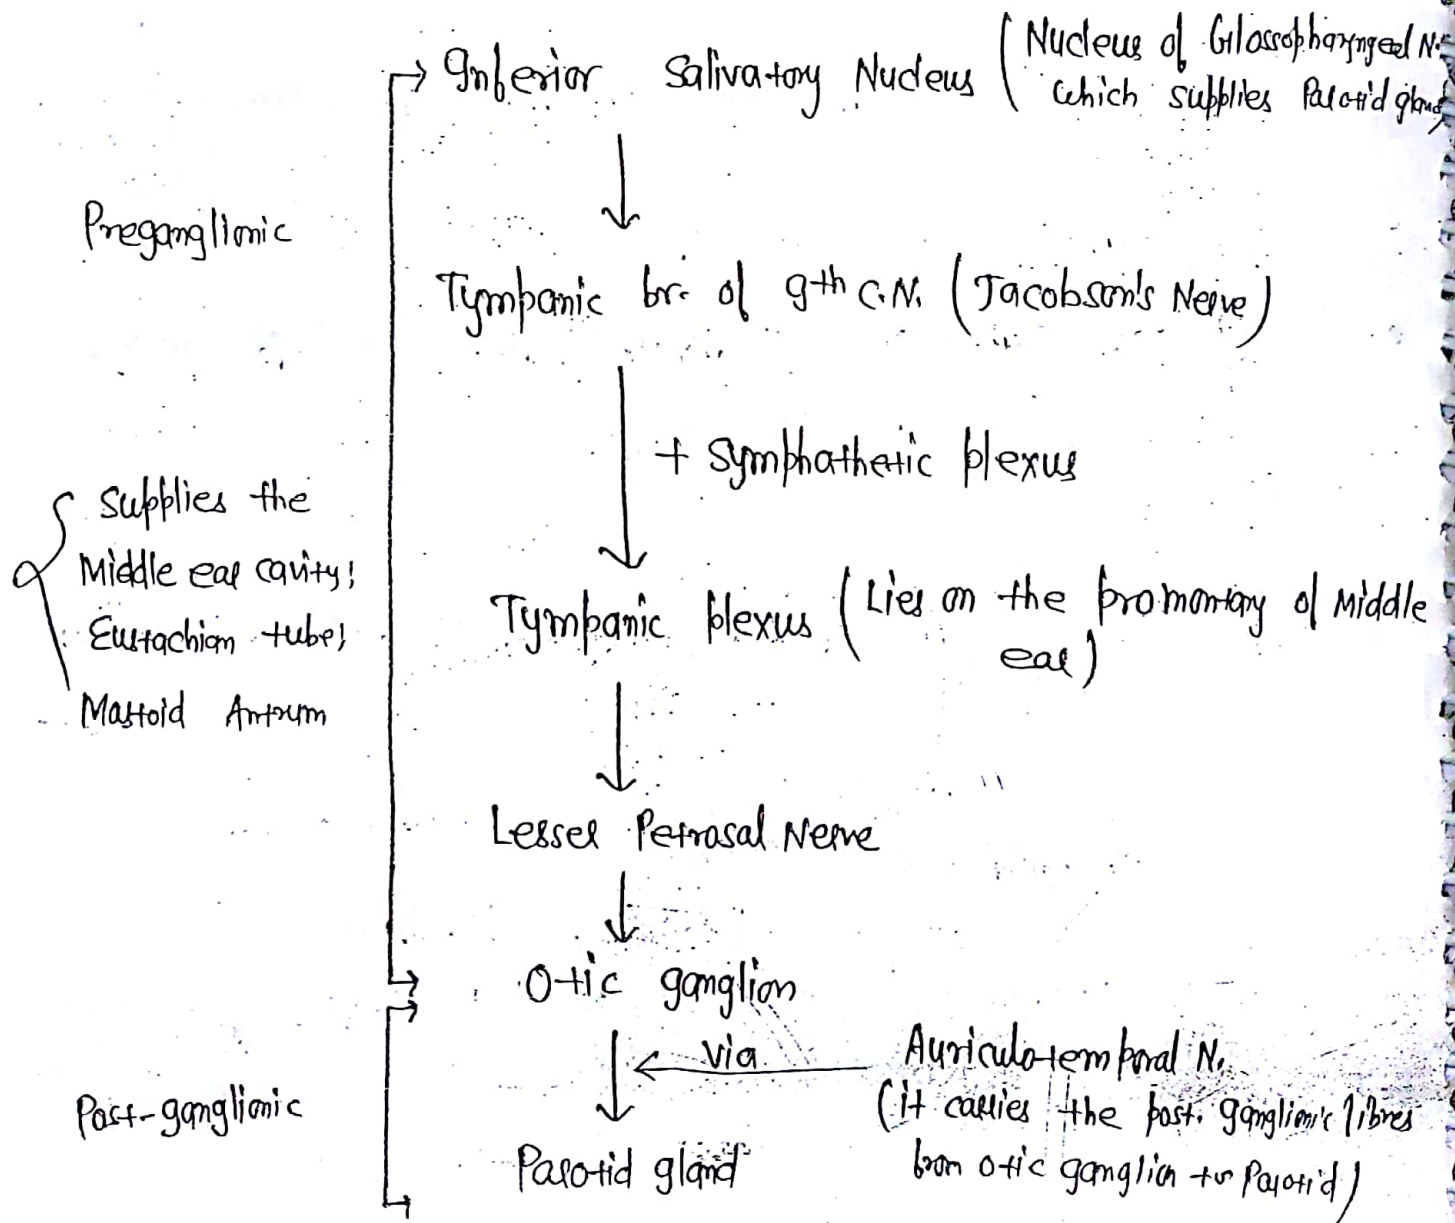 Inferior Salivatory Nucleus (Nucleus of Glossopharyngeal N.
which supplies Parotid gland)
Preganglionic
Tympanic br. of 9th C.N. (Jacobson's Nerve)
+ Symphathetic plexus
Supplies the
Middle ear cavity,
Eustachian tube,
Mastoid Antrum
Tympanic plexus (Lies on the promontory of Middle
ear)
Lesser Petrosal Nerve
Otic ganglion
via
Auriculotemporal N.
(it carries the post. ganglionic fibres
from otic ganglion to Parotid)
Post-ganglionic
Parotid gland